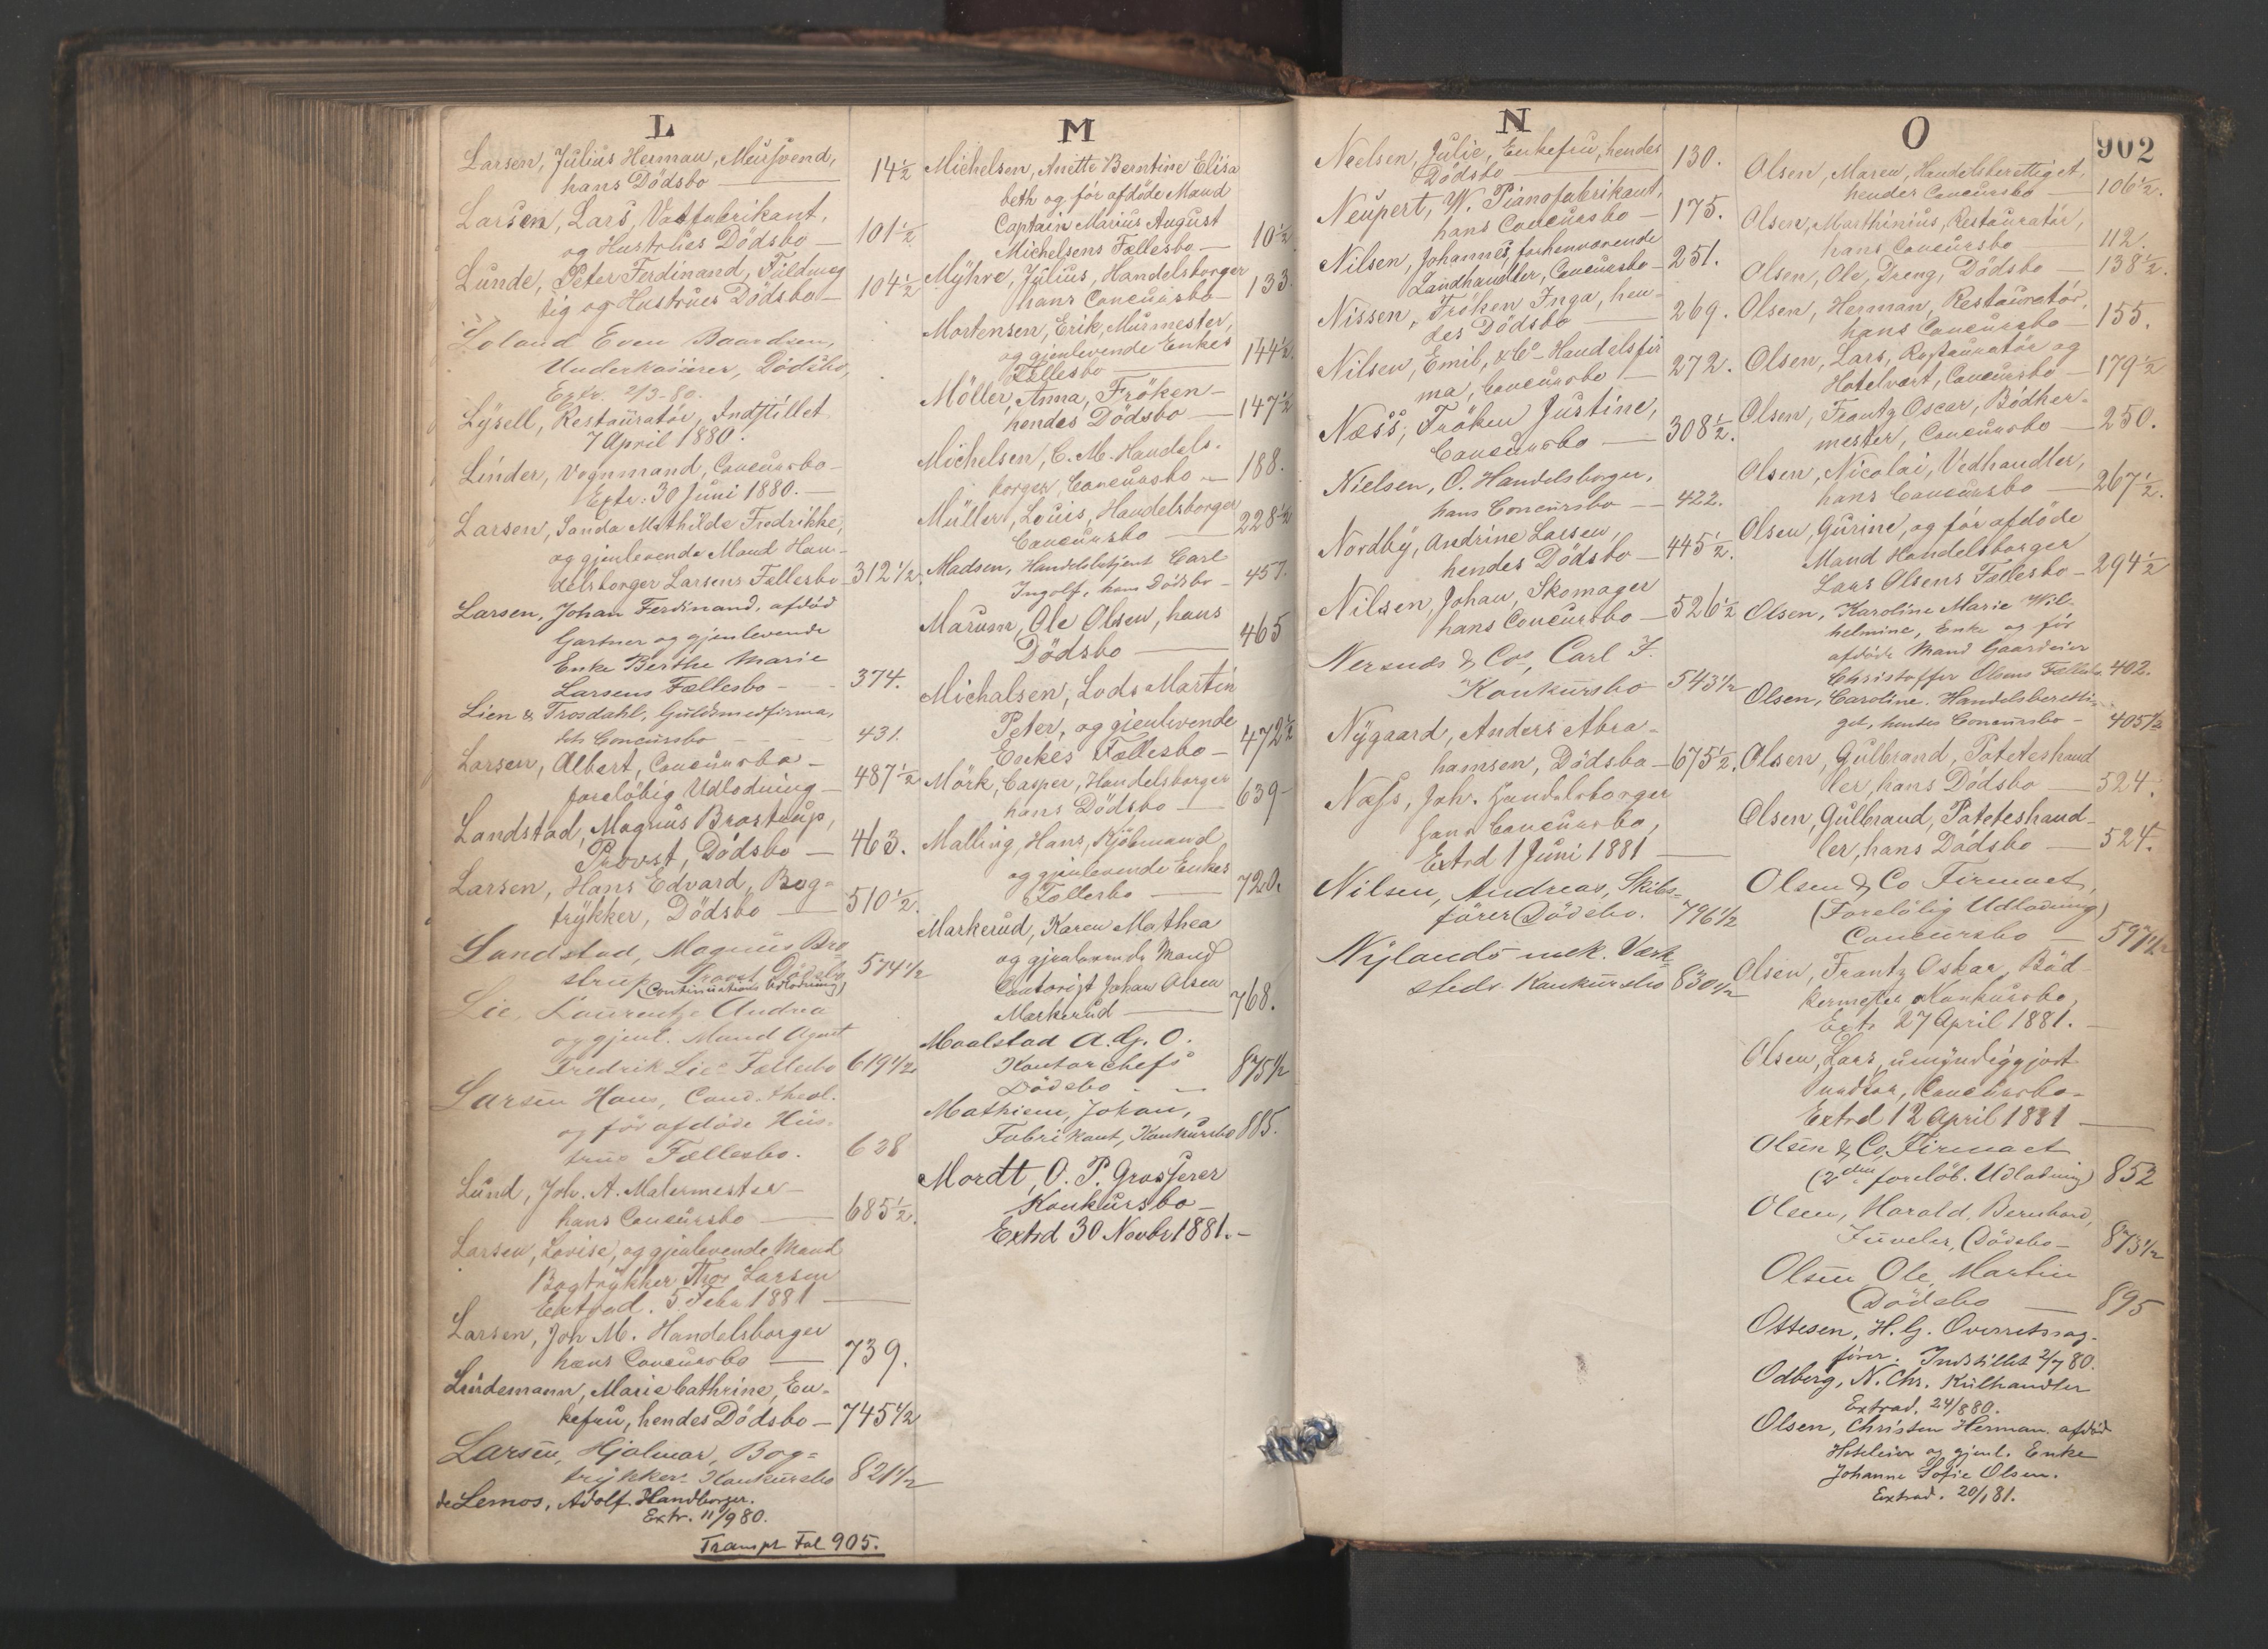 L
Larsen, Julius Herman, Mursvend,
hans Dödsbo — 14½
Larsen, Lars, Vatfabrikant,
og Hustrues Dödsbo — 101½
Lunde, Peter Ferdinand, Fuldmæg
tig og Hustrues Dödsbo — 104½
Loland Even Baardsen,
Underkasserer, Dödsbo,
Extr. 2/3-80.
Lysell, Restauratör, Indstillet
7 April 1880.
Linder, Vognmand, Concursbo —
Extr. 30 Juni 1880. —
Larsen, Sanda Mathilde Fredrikke,
og gjenlevende Mand Han-
delsborger Larsens Fællesbo — 312½
Larsen, Johan Ferdinand, afdöd
Gartner og gjenlevende
Enke Berthe Marie
Larsens Fællesbo — 374.
Lien & Trosdahl, Guldsmedfirma,
dets Concursbo — 431.
Larsen, Albert, Concursbo —
foreløbig Udlodning — 487½
Landstad, Magnus Brostrup,
Provst, Dödsbo — 463.
Larsen, Hans Edvard, Bog=
trykker, Dödsbo — 510½.
Landstad, Magnus Bro
strup, Provst Dödsbo 574½
(Continuations Udlodning)
Lie, Laurentze Andrea
og gjenl. Mand Agent
Fredrik Lies Fællesbo 619½
Larsen Hans, Cand. theol.
ogför afdöde Hus-
trues Fællesbo. 628
Lund, Joh. A. Malermester —
hans Concursbo — 685½.
Larsen, Lovise, og gjenlevende Mand
Bogtrykker Thos Larsen
Extrad. 5 Febr 1881 —
Larsen, Joh M. Handelsborger
hans Concursbo — 739.
Lindemann, Marie Cathrine, En-
kefru, hendes Dödsbo — 745½
Larsen, Hjalmar, Bog=
trykkers Konkursbo 821½
de Lemos, Adolf. Handborger.
Extr. 11/9 80.
Transpt Fol 905.
M
Michelsen, Anette Berntine Elisa
beth og för afdöde Mand
Captain Marius August
Michelsens Fællesbo — 10½
Myhre, Julius, Handelsborger
hans Concursbo — 133.
Mortensen, Erik, Murmester,
og gjenlevende Enkes
Fællesbo — 144½.
Möller, Anna, Fröken —
hendes Dödsbo — 147½
Michelsen, C. M. Handels-
borger, Concursbo — 188.
Müller, Louis, Handelsborger
Concursbo — 228½
Madsen, Handelsbetjent Carl
Ingolf, hans Dödsbo — 457.
Marum, Ole Olsen, hans
Dödsbo — 465
Michalsen, Lods Martin
Peter, og gjenlevende
Enkes Fællesbo — 472½
Mörk, Casper, Handelsborger
hans Dödsbo — 639 —
Malling, Hans, Kjöbmand
og gjenlevende Enkes
Fællesbo — 720.
Markerud, Karen Mathea
og gjenlevende Mand
Contorist Johan Olsen
Markerud — 768.
Maalstad A. G. O.
Kontorchefs
Dödsbo — 875½
Mathiesen, Johan,
Fabrikant, Konkursbo 885.
Mordt, O. P. Grosserer
Konkursbo —
Extrd 30 Novbr 1881. —
N
Neelsen, Julie, Enkefru, hendes
Dödsbo — 130.
Neupert, W. Pianofabrikant,
hans Concursbo — 175.
Nilsen, Johannes, forhenværende
Landhandler, Concursbo — 251.
Nissen, Fröken Inga, hen-
des Dödsbo — 269.
Nilsen, Emil, & Co — Handelsfir
ma, Concursbo — 272.
Næss, Fröken Justine,
Concursbo — 308½.
Nielsen, O. Handelsborger,
hans Concursbo — 422.
Nordby, Andrine Larsen,
hendes Dödsbo — 445½.
Nilsen, Johan, Skomager
hans Concursbo — 526½
Nersnds & Cos, Carl F.
Konkursbo 543½
Nygaard, Anders Abra-
hamsen, Dödsbo — 675½.
Næss, Joh. Handelsborger
hans Concursbo,
Extrd 1 Juni 1881 —
Nilsen, Andreas, Skibs=
förer Dödsbo. 796½
Nylands mek. Værk-
steds Konkursbo 830½
O
902
Olsen, Maren, Handelsberettiget,
hendes Concursbo — 106½.
Olsen, Marthinius, Restauratör,
hans Concursbo — 112.
Olsen, Ole, Dreng, Dödsbo — 138½.
Olsen, Herman, Restauratör,
hans Concursbo — 155.
Olsen, Lars, Restauratör og
Hotelvært, Concursbo — 179½
Olsen, Frantz Oscar, Bödker-
mester, Concursbo — 250.
Olsen, Nicolai, Vedhandler,
hans Concursbo — 267½.
Olsen, Gurine, og för afdöde
Mand Handelsborger
Lars Olsens Fællesbo — 294½
Olsen, Karoline Marie Wil-
helmine, Enke og för
afdöde Mand Gaardeier
Christoffer Olsens Fællesbo 402.
Olsen, Caroline. Handelsberetti-
get, hendes Concursbo — 405½
Olsen, Gulbrand, Poteteshand
ler, hans Dödsbo — 524.
Olsen, Gulbrand, Poteteshand-
ler, hans Dödsbo — 524.
Olsen & Co Firmaet,
(Foreløbig Udlodning)
Concursbo — 597½
Olsen, Frantz Oskar, Böd-
kermester, Konkursbo,
Extr 27 April 1881. —
Olsen, Lars, umyndiggjort
Concursbo —
Extrd 12 April 1881 —
Olsen & Co, Firmaet
(2den foreløb. Udlodning) 852
Olsen, Harald, Bernhard,
Juveler, Dödsbo — 873½
Olsen Ole, Martin
Dödsbo — 895
Ottesen, H. G. Overretssag-
förer. Indstillet 2/7 80.
Odberg, N. Chr. Kulhandler
Extrad. 24/8 80.
Olsen, Christen Herman, afdöd
Hoteleier og gjenl. Enke
Johanne Sofie Olsen.
Extrad. 20/1 81.